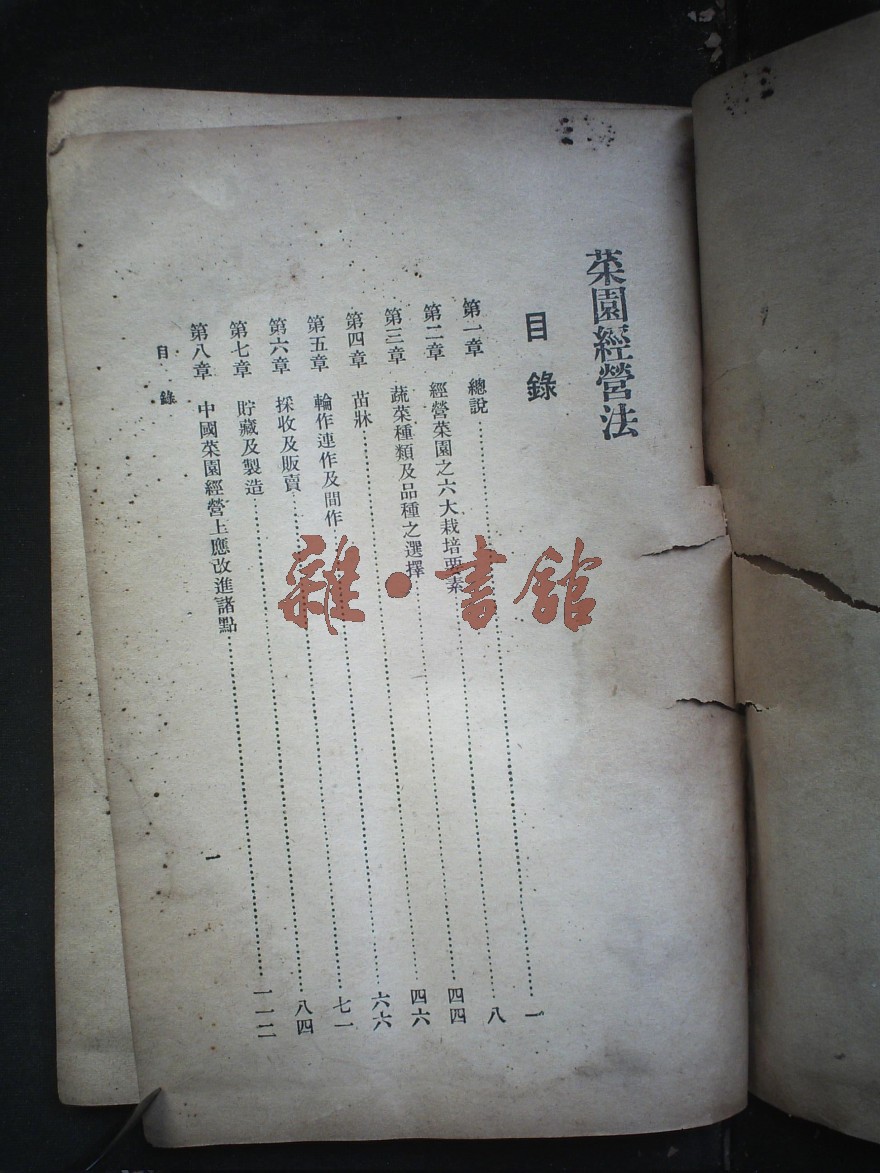 菜園經營法
目錄
第一章 總說……一
第二章 經營菜園之六大栽培要素……八
第三章 蔬菜種類及品種之選擇……四四
第四章 苗牀……四六
第五章 輪作連作及間作……六六
第六章 採收及販賣……七一
第七章 貯藏及製造……八四
第八章 中國菜園經營上應改進諸點……一一二
目錄
一
雜·書館